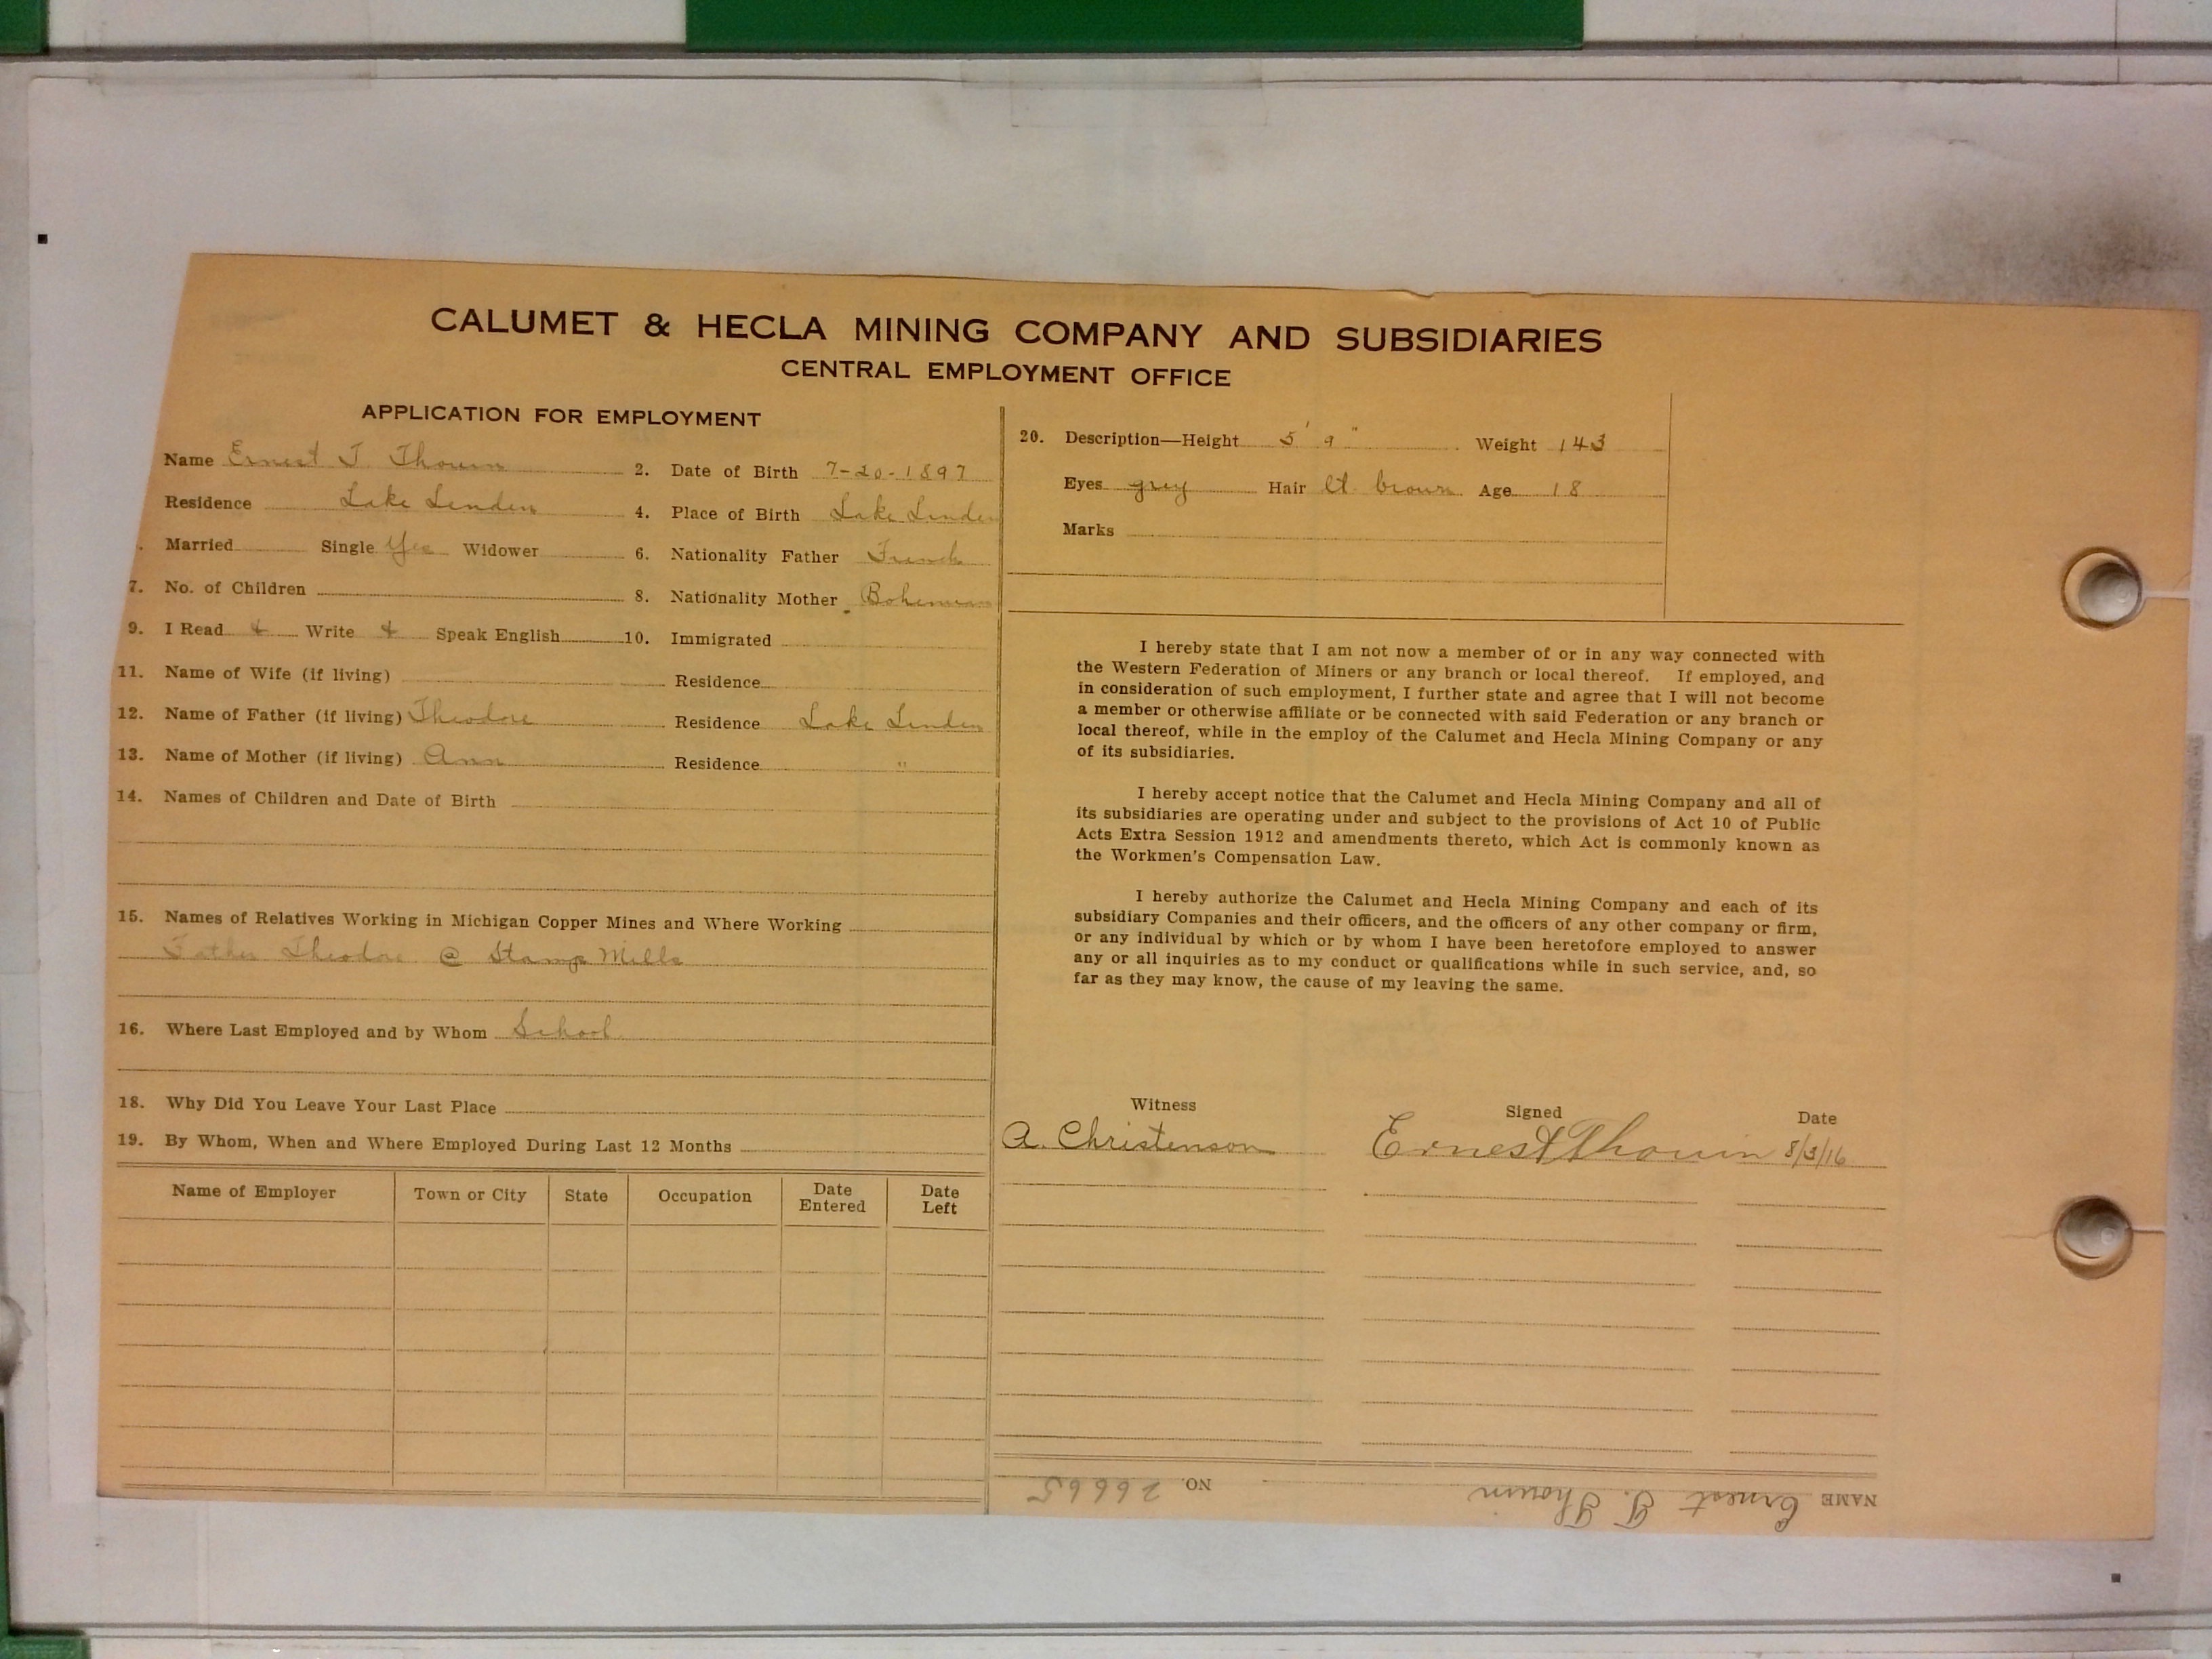 CALUMET & HECLA MINING COMPANY AND SUBSIDIARIES
CENTRAL EMPLOYMENT OFFICE
APPLICATION FOR EMPLOYMENT
Name Ernest J Thouin 2. Date of Birth 7-20-1897
Residence Lake Linden 4. Place of Birth Lake Linden
Married Single Yes Widower 6. Nationality Father French
7. No. of Children 8. Nationality Mother Bohemian
9. I Read & Write & Speak English 10. Immigrated
11. Name of Wife (if living) Residence
12. Name of Father (if living) Theodore Residence Lake Linden
13. Name of Mother (if living) Ann Residence "
14. Names of Children and Date of Birth
15. Names of Relatives Working in Michigan Copper Mines and Where Working
Father Theodore @ Stamp Mills
16. Where Last Employed and by Whom School
18. Why Did You Leave Your Last Place
19. By Whom, When and Where Employed During Last 12 Months
Name of Employer Town or City State Occupation Date Entered Date Left
20. Description—Height 5' 9" Weight 143
Eyes grey Hair lt. brown Age 18
Marks
I hereby state that I am not now a member of or in any way connected with
the Western Federation of Miners or any branch or local thereof. If employed, and
in consideration of such employment, I further state and agree that I will not become
a member or otherwise affiliate or be connected with said Federation or any branch or
local thereof, while in the employ of the Calumet and Hecla Mining Company or any
of its subsidiaries.
I hereby accept notice that the Calumet and Hecla Mining Company and all of
its subsidiaries are operating under and subject to the provisions of Act 10 of Public
Acts Extra Session 1912 and amendments thereto, which Act is commonly known as
the Workmen's Compensation Law.
I hereby authorize the Calumet and Hecla Mining Company and each of its
subsidiary Companies and their officers, and the officers of any other company or firm,
or any individual by which or by whom I have been heretofore employed to answer
any or all inquiries as to my conduct or qualifications while in such service, and, so
far as they may know, the cause of my leaving the same.
Witness Signed Date
A. Christenson Ernest Thouin 8/3/16
NAME Ernest T. Thouin NO. 26665